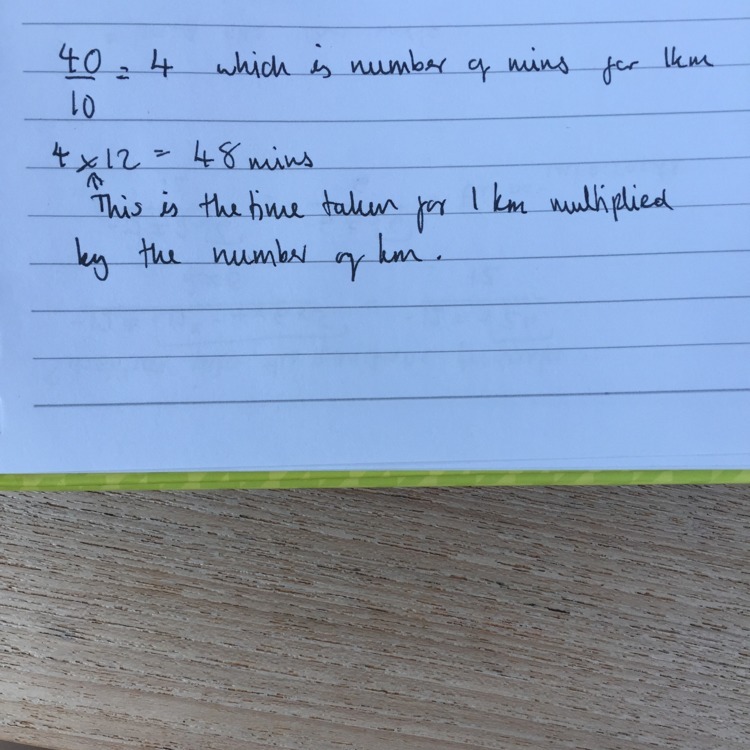 40/10 = 4 which is number of mins for 1km
4 x 12 = 48 mins
↑ This is the time taken for 1 km multiplied
by the number of km.